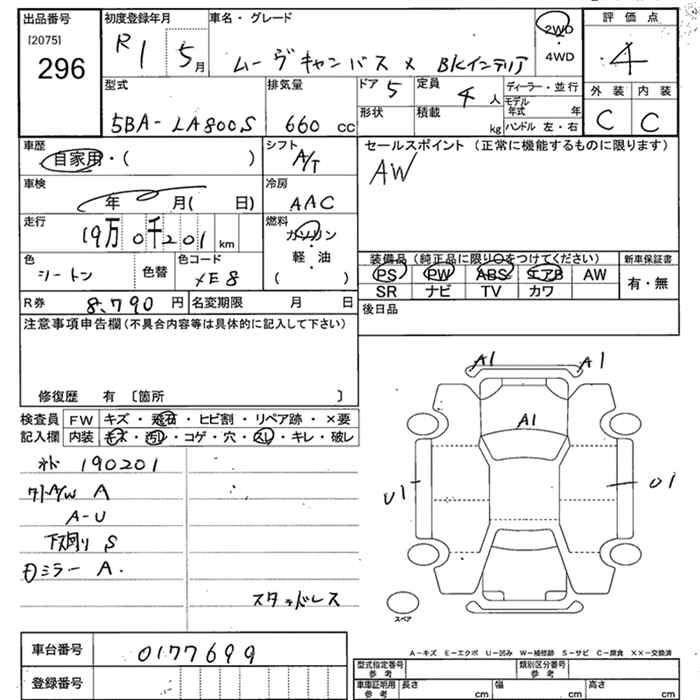 出品番号 初度登録年月 車名・グレード 2WD 評価点
[2075] R1 5月 ムーヴキャンバス X BKインテリア ・4WD 4
296
型式 排気量 ドア 5 定員 4人 ディーラー・並行 外装 内装
5BA-LA800S 660cc 形状 積載 kg モデル年式 年 C C
ハンドル 左・右
車歴 シフト セールスポイント (正常に機能するものに限ります)
自家用・( ) A/T AW
車検 年 月( 日) 冷房 AAC
走行 19万0千201km 燃料 ガソリン・軽油 ( )
色 シートン 色替 色コード XE8
装備品 (純正品に限り○をつけてください) 新車保証書
PS PW ABS エアB AW 有・無
SR ナビ TV カワ
R券 8,790円 名変期限 月 日 後日品
注意事項申告欄 (不具合内容等は具体的に記入して下さい)
修復歴 有 〔箇所 〕
検査員 FW キズ・飛石・ヒビ割・リペア跡・×要
記入欄 内装 キズ・汚レ・コゲ・穴・スレ・キレ・破レ
190201
A
A-U
下廻り S
ミラー A.
スタッドレス
A1 A1
A1
U1 U1
スペア
A−キズ E−エクボ U−凹み W−補修跡 S−サビ C−腐食 XX−交換済
車台番号 0177699
登録番号
型式指定番号 参考 類別区分番号 参考
車庫証明用 参考 長さ cm 幅 cm 高さ cm